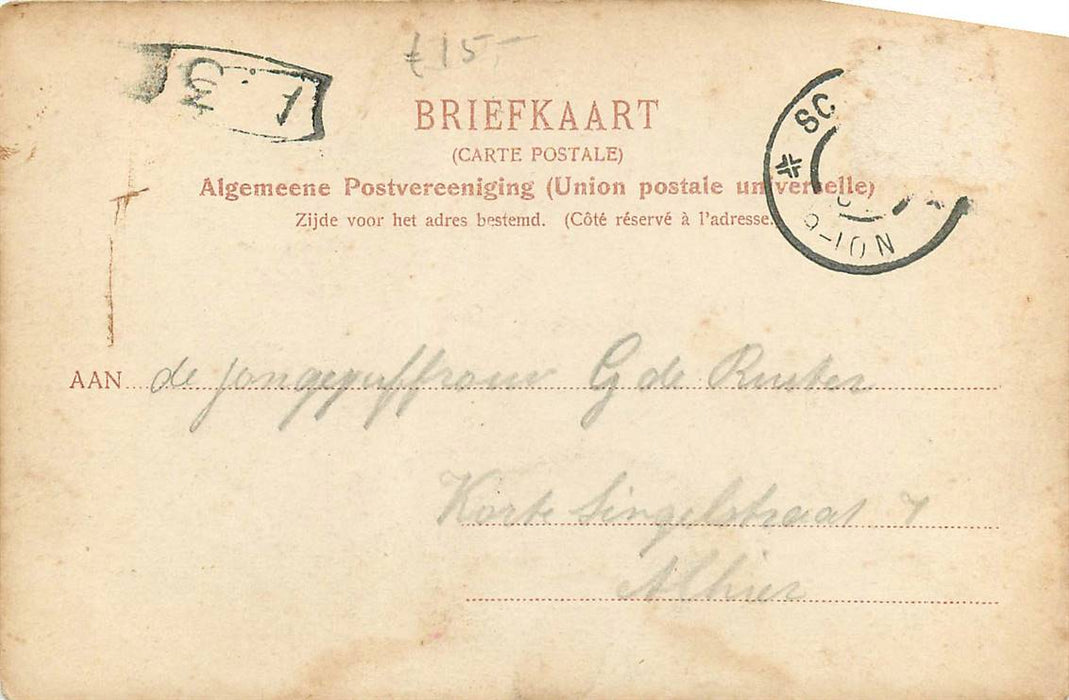 £ 15,-
BRIEFKAART
(CARTE POSTALE)
Algemeene Postvereeniging (Union postale universelle)
Zijde voor het adres bestemd. (Côté réservé à l'adresse.
SC
NOI-9
AAN de jongejuffrouw G de Ruiter
Korte Singelstraat 7
Alhier